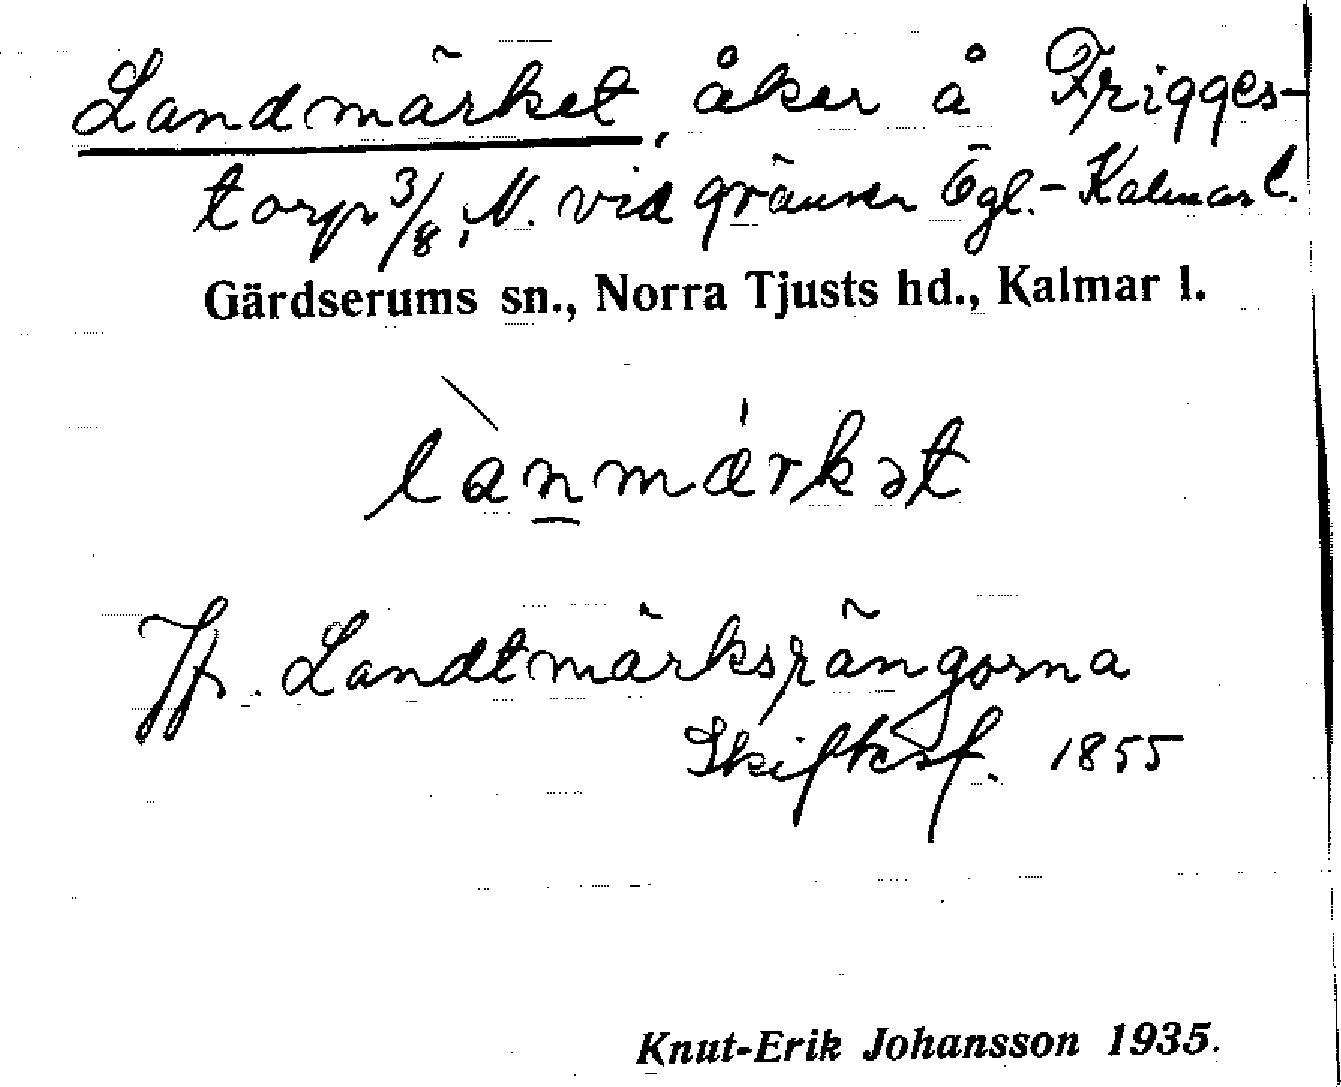 Landmärket, åker å Frigges-
torp 3/8, N. vid gränsen Ögl.- Kalmar l.
Gärdserums sn., Norra Tjusts hd., Kalmar l.
lànmǽrkət
Jfr. Landtmärksrängorna
Skifteskf. 1855
Knut-Erik Johansson 1935.